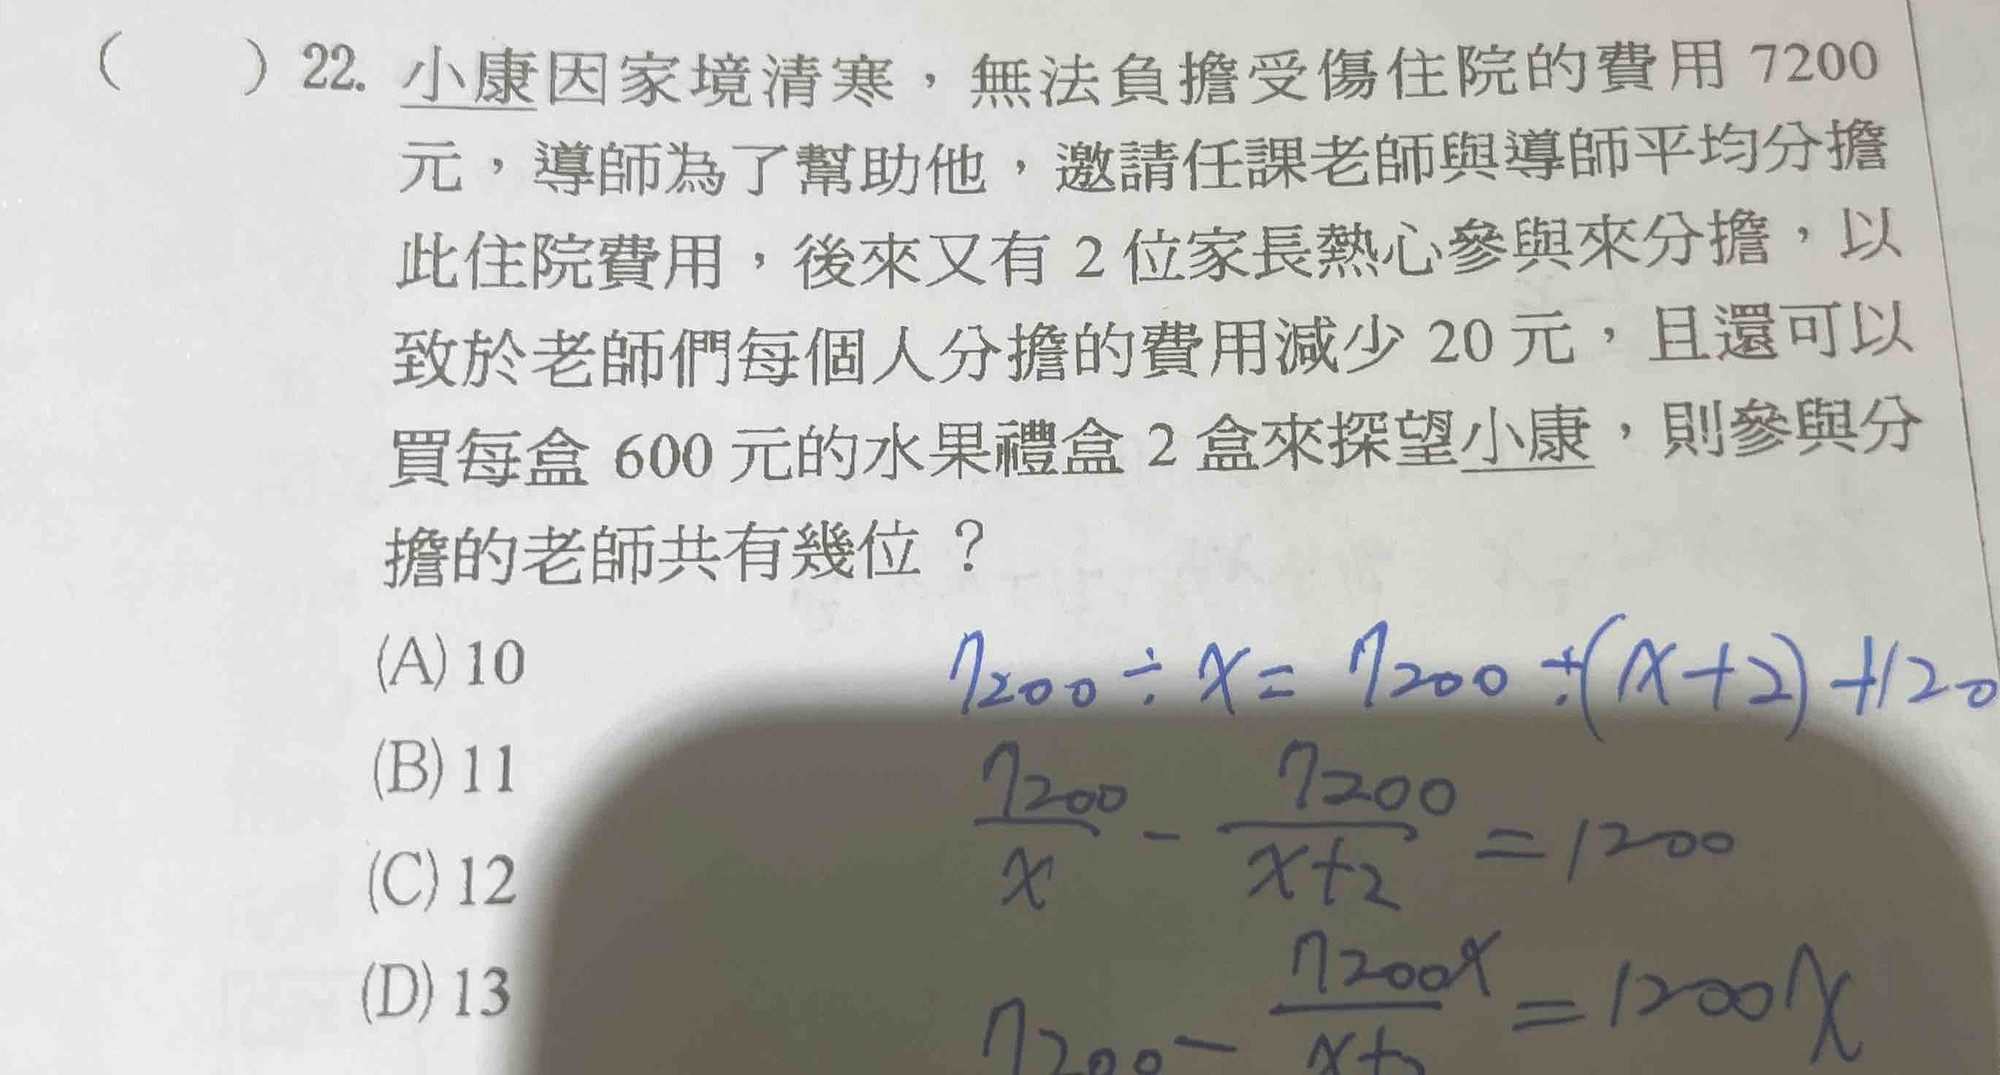 ( ) 22. 小康因家境清寒，無法負擔受傷住院的費用 7200
元，導師為了幫助他，邀請任課老師與導師平均分擔
此住院費用，後來又有 2 位家長熱心參與來分擔，以
致於老師們每個人分擔的費用減少 20 元，且還可以
買每盒 600 元的水果禮盒 2 盒來探望小康，則參與分
擔的老師共有幾位？
(A) 10
7200÷x=7200÷(x+2)+120
(B) 11
7200/x - 7200/x+2 = 1200
(C) 12
(D) 13
7200- 7200x/x+2 = 1200x